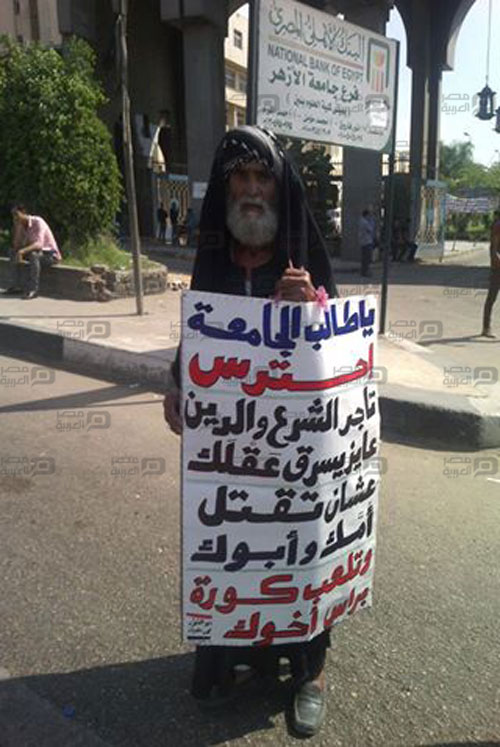 البنك الأهلى المصرى
NATIONAL BANK OF EGYPT
فرع جامعة الأزهر
يا طالب الجامعة
احترس
تاجر الشرع والدين
عايز يسرق عقلك
عشان تقتل
أمك وأبوك
وتلعب كورة
براس أخوك
مصر العربية